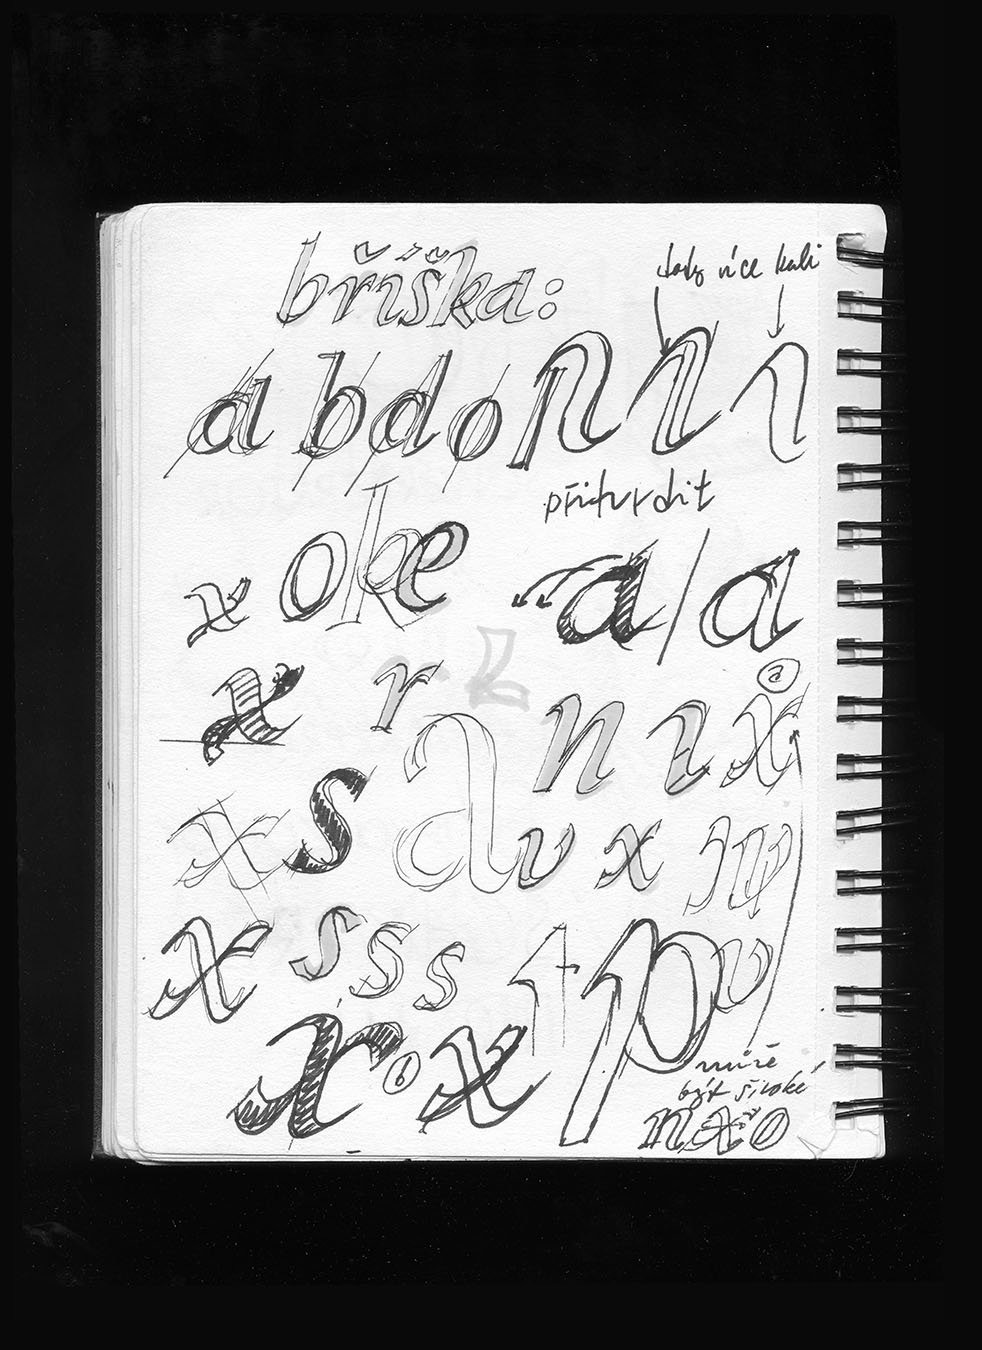 bříška:
tady více kali
a b d o n n i
přitvrdit
x o k e a / a
x r z n i x a
x s a v x
x s s s t p v
x 6 x může
být široké
n x o